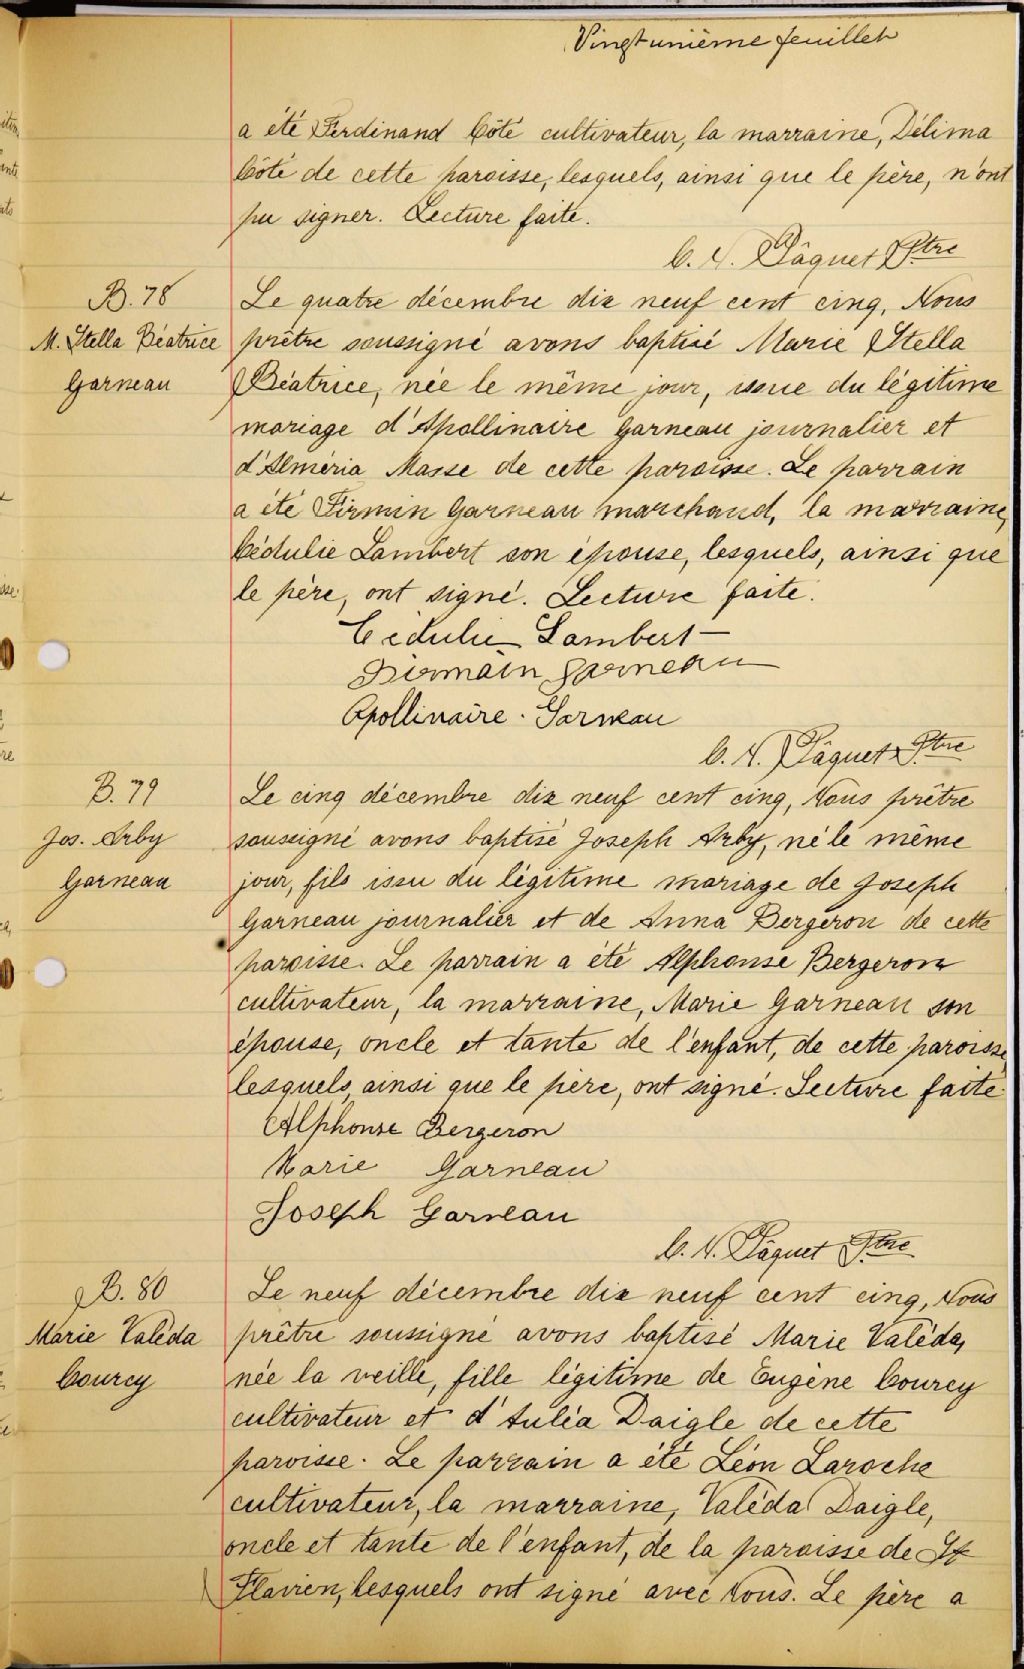 Vingt unième feuillet
a été Ferdinand Côté cultivateur, la marraine, Délima
Côté de cette paroisse, lesquels, ainsi que le père, n'ont
pu signer. Lecture faite.
C. N. Pâquet Ptre
B. 78
M. Stella Béatrice
Garneau
Le quatre décembre dix neuf cent cinq, Nous
prêtre soussigné avons baptisé Marie Stella
Béatrice, née le même jour, issue du légitime
mariage d'Apollinaire Garneau journalier et
d'Alméria Masse de cette paroisse. Le parrain
a été Firmin Garneau marchand, la marraine,
Cédulie Lambert son épouse, lesquels, ainsi que
le père, ont signé. Lecture faite.
Cédulie Lambert
Firmain Garneau
Apollinaire Garneau
C. N. Pâquet Ptre
B. 79
Jos. Arby
Garneau
Le cinq décembre dix neuf cent cinq, Nous prêtre
soussigné avons baptisé Joseph Arby, né le même
jour, fils issu du légitime mariage de Joseph
Garneau journalier et de Anna Bergeron de cette
paroisse. Le parrain a été Alphonse Bergeron
cultivateur, la marraine, Marie Garneau son
épouse, oncle et tante de l'enfant, de cette paroisse
lesquels, ainsi que le père, ont signé. Lecture faite.
Alphonse Bergeron
Marie Garneau
Joseph Garneau
C. N. Pâquet Ptre
B. 80
Marie Valéda
Courcy
Le neuf décembre dix neuf cent cinq, Nous
prêtre soussigné avons baptisé Marie Valéda,
née la veille, fille légitime de Eugène Courcy
cultivateur et d'Auléa Daigle de cette
paroisse. Le parrain a été Léon Laroche
cultivateur, la marraine, Valéda Daigle,
oncle et tante de l'enfant, de la paroisse de St
Flavien, lesquels ont signé avec Nous. Le père a